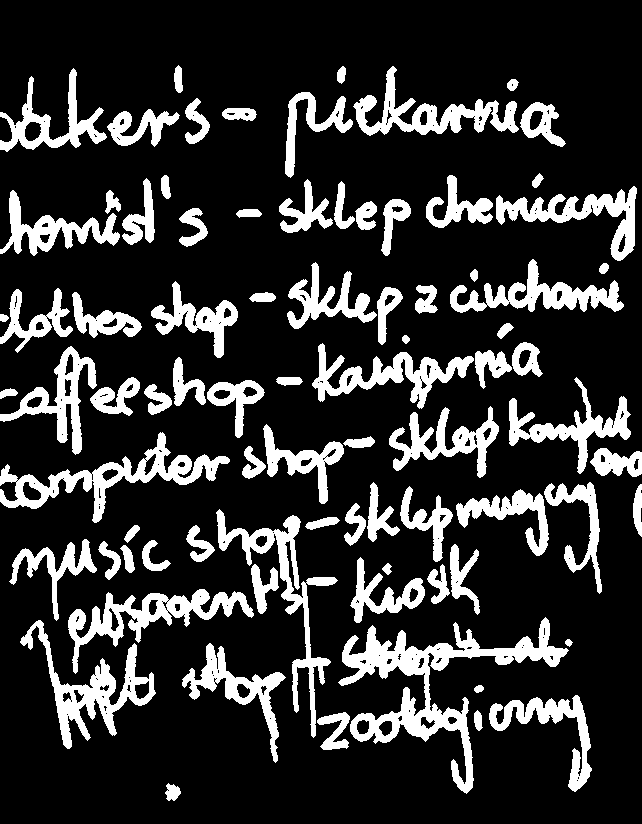 baker's - piekarnia
chemist's - sklep chemiczny
clothes shop - sklep z ciuchami
coffeeshop - kawiarnia
computer shop - sklep komput
music shop - sklep muzyczny
newsagent's - kiosk
pet shop - sklep
zoologiczny